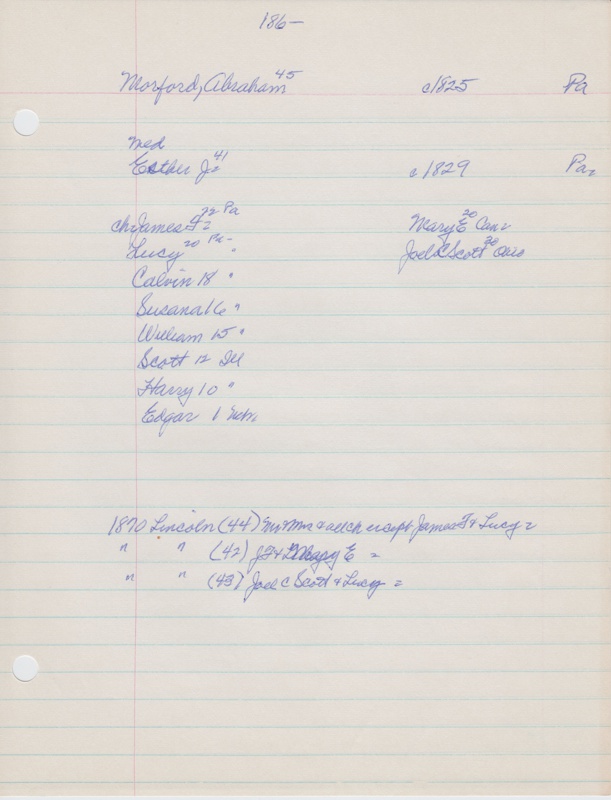 186-
Morford, Abraham 45 c1825 Pa
med
Esther J= 41 c1829 Pa=
ch: James F= 22 Pa Mary E 20 Can=
Lucy 20 Pa- " Joel C Scott 30 Ohio
Calvin 18 "
Susana 16 "
William 15 "
Scott 12 Ill
Harry 10 "
Edgar 1 Nebr
1870 Lincoln (44) Mr & Mrs & all ch except James F & Lucy =
" " (42) JF & Mary E =
" " (43) Joel C Scott & Lucy =